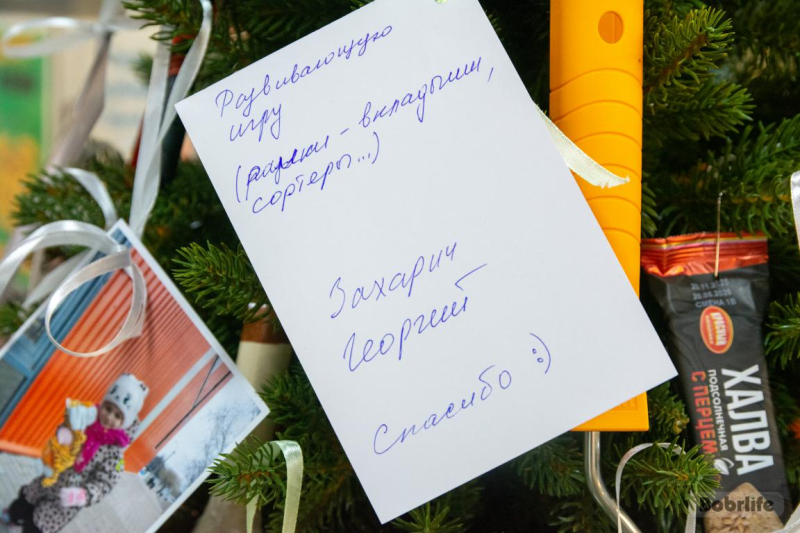 Развивающую
игру
(рамки - вкладыши,
сортеры...)
Захарич
Георгий
Спасибо :)
20.11.2025
СМЕНА 1В
ХАЛВА
ПОДСОЛНЕЧНАЯ
С ПЕРЦЕМ
Bobrlife